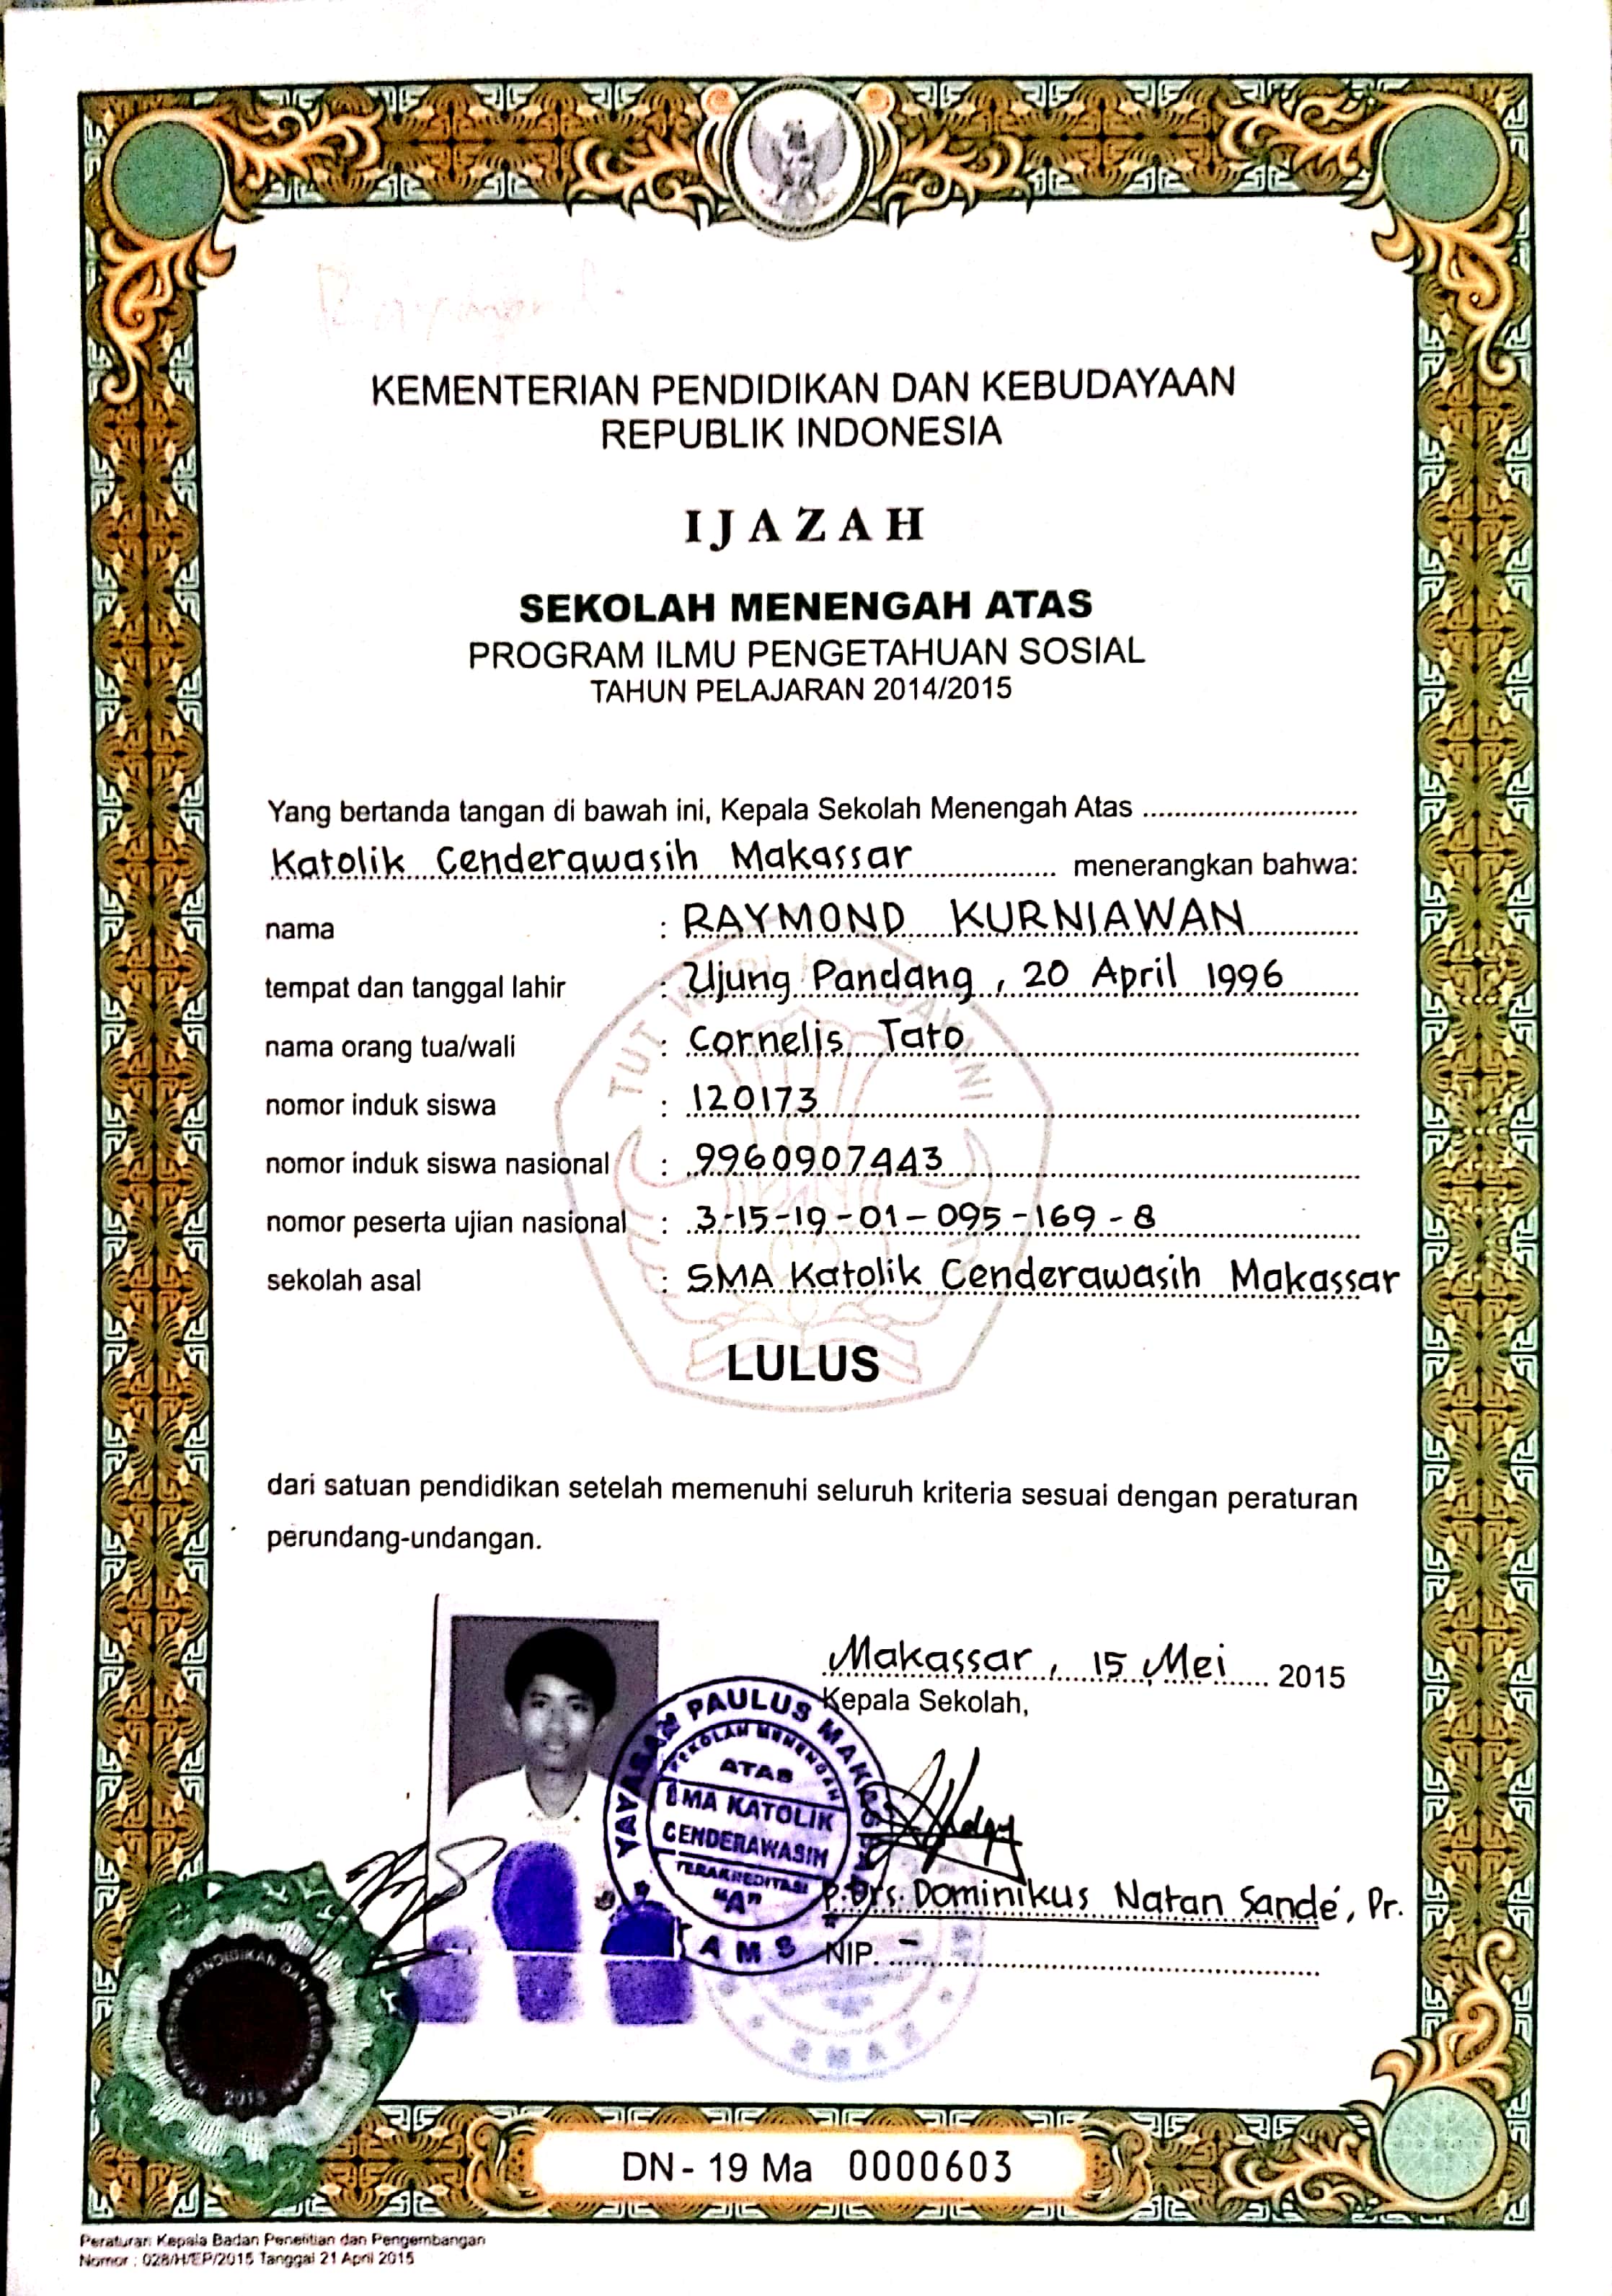 KEMENTERIAN PENDIDIKAN DAN KEBUDAYAAN
REPUBLIK INDONESIA
IJAZAH
SEKOLAH MENENGAH ATAS
PROGRAM ILMU PENGETAHUAN SOSIAL
TAHUN PELAJARAN 2014/2015
Yang bertanda tangan di bawah ini, Kepala Sekolah Menengah Atas
Katolik Cenderawasih Makassar menerangkan bahwa:
nama : RAYMOND KURNIAWAN
tempat dan tanggal lahir : Ujung Pandang, 20 April 1996
nama orang tua/wali : Cornelis Tato
nomor induk siswa : 120173
nomor induk siswa nasional : 9960907443
nomor peserta ujian nasional : 3-15-19-01-095-169-8
sekolah asal : SMA Katolik Cenderawasih Makassar
TUT WURI HANDAYANI
LULUS
dari satuan pendidikan setelah memenuhi seluruh kriteria sesuai dengan peraturan
perundang-undangan.
Makassar, 15 Mei 2015
Kepala Sekolah,
YAYASAN PAULUS MAKASSAR
SEKOLAH MENENGAH
ATAS
SMA KATOLIK
CENDERAWASIH
TERAKREDITASI
"A"
P. Drs. Dominikus Natan Sandé, Pr.
NIP. -
PENDIDIKAN DAN
2015
DN - 19 Ma 0000603
Peraturan Kepala Badan Penelitian dan Pengembangan
Nomor : 028/H/EP/2015 Tanggal 21 April 2015